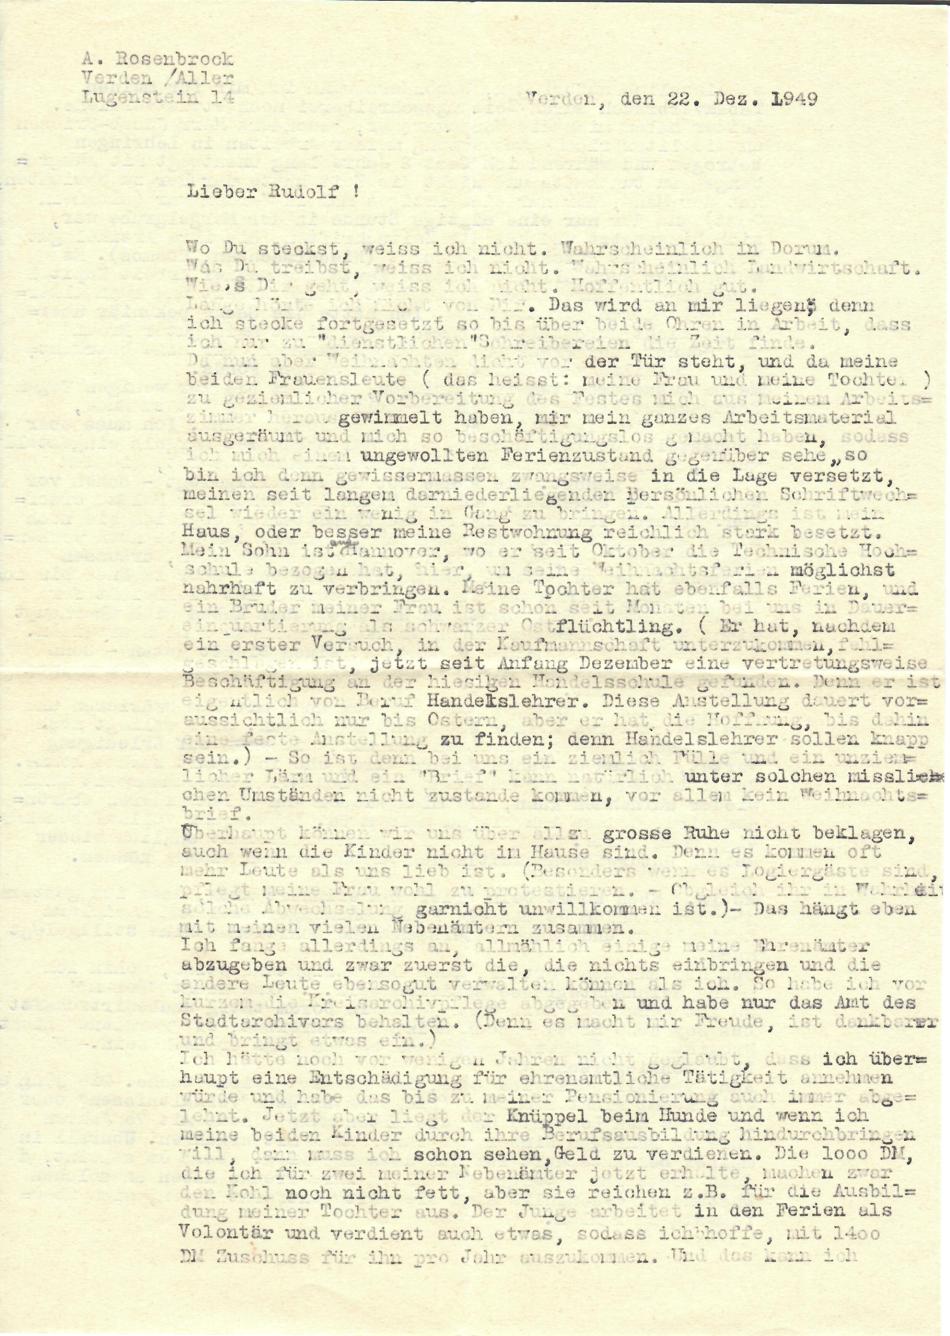 A. Rosenbrock
Verden /Aller
Lugenstein 14
Verden, den 22. Dez. 1949
Lieber Rudolf !
Wo Du steckst, weiss ich nicht. Wahrscheinlich in Dorum.
Was Du treibst, weiss ich nicht. Wahrscheinlich Landwirtschaft.
Wie's Dir geht, weiss ich nicht. Hoffentlich gut.
Lange hörte ich nicht von Dir. Das wird an mir liegen; denn
ich stecke fortgesetzt so bis über beide Ohren in Arbeit, dass
ich nur zu "dienstlichen"Schreibereien die Zeit finde.
Da nun aber Weihnachten dicht vor der Tür steht, und da meine
beiden Frauensleute ( das heisst: meine Frau und meine Tochter )
zu geziemlicher Vorbereitung des Festes mich aus meinem Arbeits=
zimmer herausgewimmelt haben, mir mein ganzes Arbeitsmaterial
ausgeräumt und mich so beschäftigungslos gemacht haben, sodass
ich mich einem ungewollten Ferienzustand gegenüber sehe,,so
bin ich denn gewissermassen zwangsweise in die Lage versetzt,
meinen seit langem darniederliegenden persönlichen Schriftwech=
sel wieder ein wenig in Gang zu bringen. Allerdings ist mein
Haus, oder besser meine Restwohnung reichlich stark besetzt.
Mein Sohn ist aus Hannover, wo er seit Oktober die Technische Hoch=
schule bezogen hat, hier, um seine Weihnachtsferien möglichst
nahrhaft zu verbringen. Meine Tochter hat ebenfalls Ferien, und
ein Bruder meiner Frau ist schon seit Monaten bei uns in Dauer=
einquartierung als schwarzer Ostflüchtling. ( Er hat, nachdem
ein erster Versuch, in der Kaufmannschaft unterzukommen,fehl=
geschlagen ist, jetzt seit Anfang Dezember eine vertretungsweise
Beschäftigung an der hiesigen Handelsschule gefunden. Denn er ist
eigentlich von Beruf Handelslehrer. Diese Anstellung dauert vor=
aussichtlich nur bis Ostern, aber er hat die Hoffnung, bis dahin
eine feste Anstellung zu finden; denn Handelslehrer sollen knapp
sein.) - So ist denn bei uns ein ziemlich Fülle und ein unziem=
licher Lärm und ein "Brief" kann natürlich unter solchen misslich=
chen Umständen nicht zustande kommen, vor allem kein Weihnachts=
brief.
Überhaupt können wir uns über allzu grosse Ruhe nicht beklagen,
auch wenn die Kinder nicht im Hause sind. Denn es kommen oft
mehr Leute als uns lieb ist. (Besonders wenn es Logiergäste sind,
pflegt meine Frau wohl zu protestieren. - Obgleich ihr in Wahrheit
solche Abwechselung garnicht unwillkommen ist.)- Das hängt eben
mit meinen vielen Nebenämtern zusammen.
Ich fange allerdings an, allmählich einige meine Ehrenämter
abzugeben und zwar zuerst die, die nichts einbringen und die
andere Leute ebensogut verwalten können als ich. So habe ich vor
kurzem die Kreisarchivpflege abgegeben und habe nur das Amt des
Stadtarchivars behalten. (Denn es macht mir Freude, ist dankbarer
und bringt etwas ein.)
Ich hätte noch vor wenigen Jahren nicht geglaubt, dass ich über=
haupt eine Entschädigung für ehrenamtliche Tätigkeit annehmen
würde und habe das bis zu meiner Pensionierung auch immer abge=
lehnt. Jetzt aber liegt der Knüppel beim Hunde und wenn ich
meine beiden Kinder durch ihre Berufsausbildung hindurchbringen
will, dann muss ich schon sehen,Geld zu verdienen. Die 1000 DM,
die ich für zwei meiner Nebenämter jetzt erhalte, machen zwar
den Kohl noch nicht fett, aber sie reichen z.B. für die Ausbil=
dung meiner Tochter aus. Der Junge arbeitet in den Ferien als
Volontär und verdient auch etwas, sodass ich hoffe, mit 1400
DM Zuschuss für ihn pro Jahr auszukommen. Und das kann ich